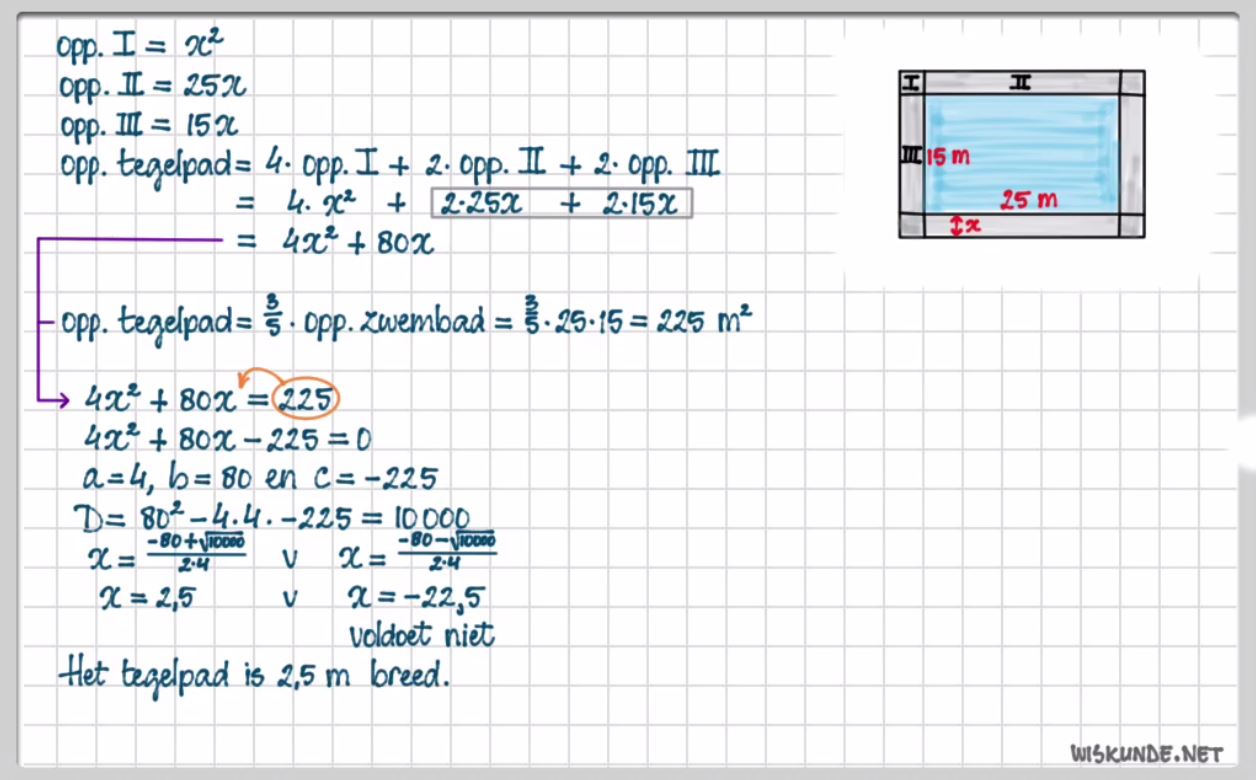 opp. I = x²
opp. II = 25x
opp. III = 15x
opp. tegelpad = 4· opp. I + 2· opp. II + 2· opp. III
= 4· x² + 2·25x + 2·15x
= 4x² + 80x
opp. tegelpad = 3/5 · opp. zwembad = 3/5 · 25·15 = 225 m²
4x² + 80x = 225
4x² + 80x – 225 = 0
a = 4, b = 80 en c = –225
D = 80² – 4·4· –225 = 10000
x = (–80+√10000)/(2·4) v x = (–80–√10000)/(2·4)
x = 2,5 v x = –22,5
voldoet niet
Het tegelpad is 2,5 m breed.
I II
III 15 m
25 m
↕x
WISKUNDE.NET